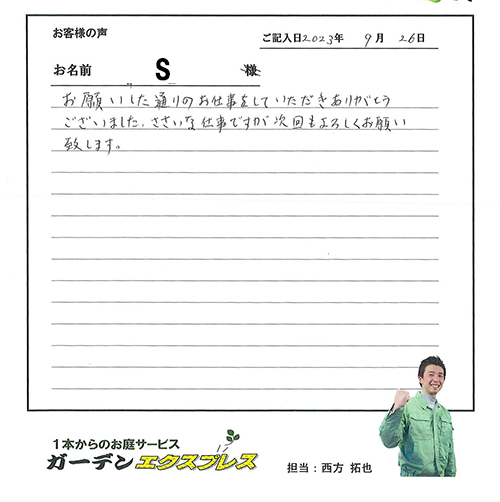 お客様の声
ご記入日2023年 9月 26日
お名前 S 様
お願いした通りのお仕事をしていただきありがとう
ございました。ささいな仕事ですが次回もよろしくお願い
致します。
1本からのお庭サービス
ガーデンエクスプレス
担当：西方 拓也